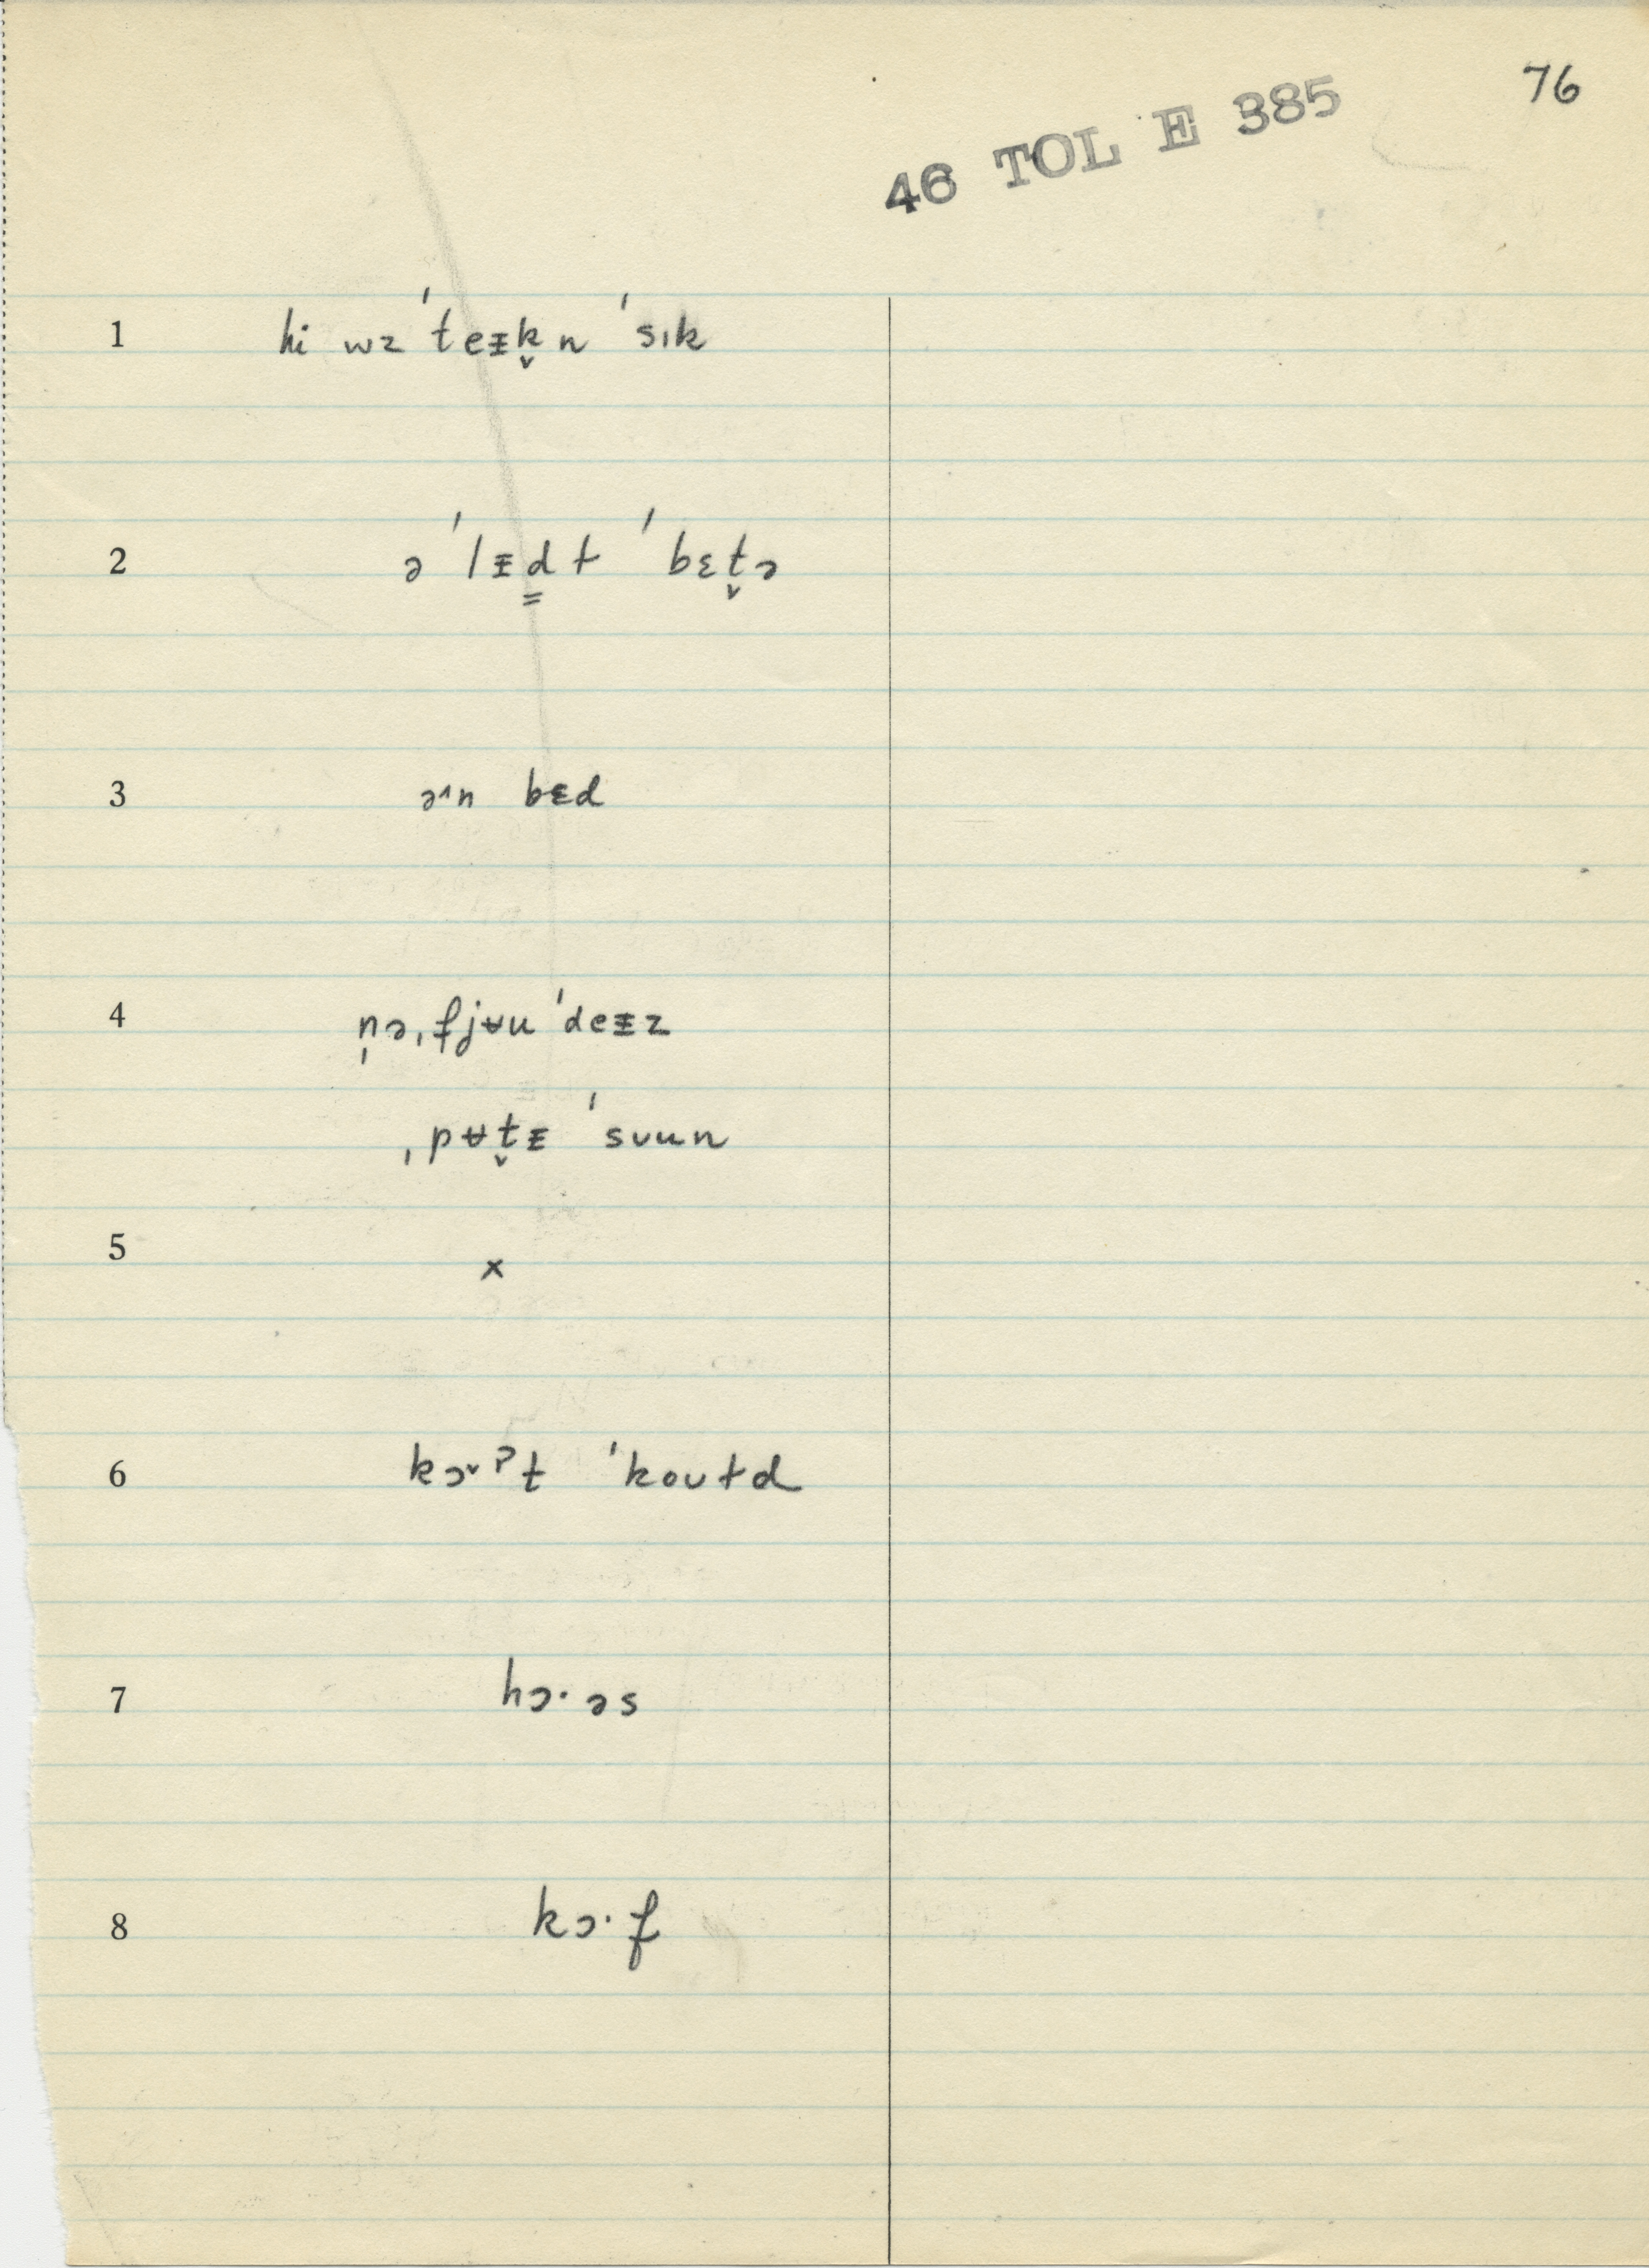 76
46 TOL E 385
1 hi wz ˈteᵻk̬n ˈsɪk
2 ə ˈlᵻd̳ɫ ˈbɛt̬ə
3 ə˄n bɛd
4 n̩əˌfjʉu ˈdeᵻz
ˌpʉt̬ᵻ ˈsuun
5 x
6 kɔ˅ʔt ˈkoʊɫd
7 hɔ·əs
8 kɔ·f